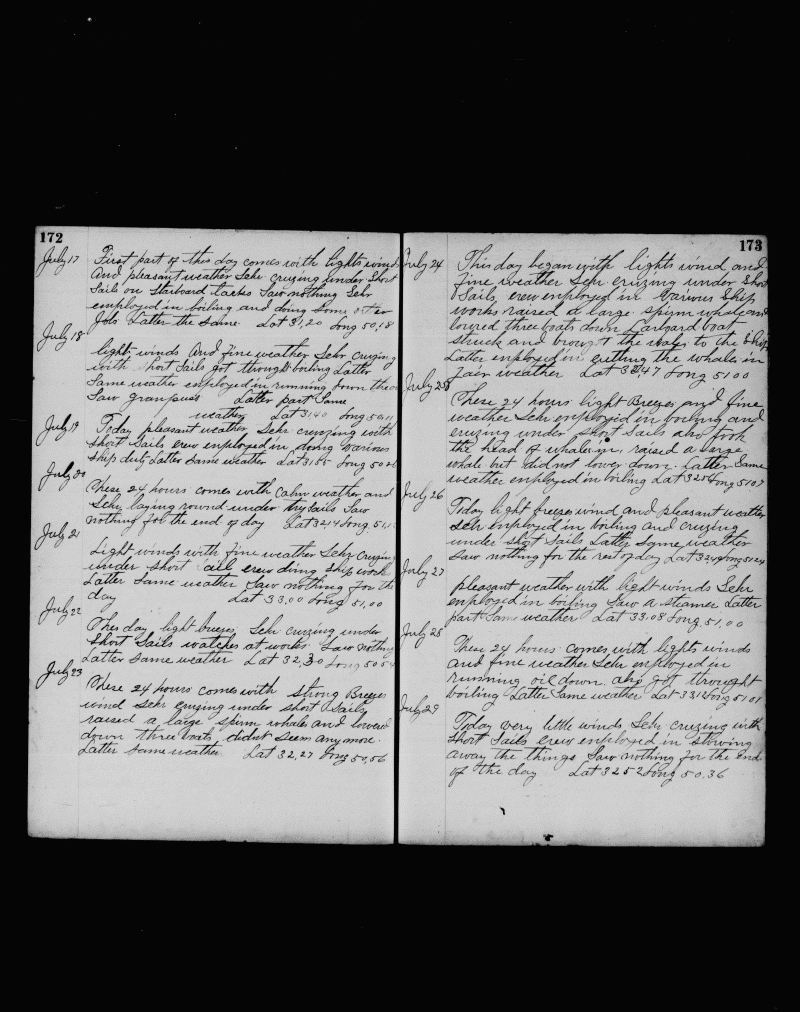 172
July 17 First part of this day comes with lights wind
And pleasant weather Schr cruzing under Short
Sails on Starboard tacks Saw nothing Schr
employed in boiling and doing some other
Jobs Latter the same. Lat 31,20 Long 50,18
July 18
light winds And fine weather Schr Cruzing
with short Sails got through boiling Latter
Same weather employed in running down the
Saw grampuses Latter part Same
weather Lat 3140 Long 50,11
July 19 Today pleasant weather Schr cruezing with
short Sails crew employed in doing various
ship duty Latter same weather Lat 31,55 Long 50
July 20
These 24 hours comes with Calm weather and
Schr laying round under trysails Saw
nothing for the end of day Lat 32,14 Long 51,1
July 21
Light winds with fine weather Schr Cruzing
under short ail crew doing Ship work
Latter same weather Saw nothing for the
day Lat 33,00 Long 51,00
July 22
This day light breeses Schr cruzing under
Short Sails watches at works Saw nothing
Latter same weather Lat 32,30 Long 50
July 23
These 24 hours comes with strong Breeses
wind Schr cruzing under short Sails
raised a large spirm whales and lowered
down three boats didnt seem anymore.
Latter same weather Lat 32,27 Long 50,56
173
July 24 This day began with lights wind and
fine weather Schr cruzing under Short
Sails, crew employed in Vairious Ship
works raised a large spirm whale and
lowred three boats down Larboard boat
struck and brough't the whales to the Ship
Latter employed in cutting the whales in
Fair weather Lat 32,47 Long 51 00
July 25
These 24 hours light Breezes and fine
weather Schr employed in boiling and
cruzing under short Sails also took
the head of whales in, raised a large
whale but did not lower down. Latter Same
weather employed in boiling Lat 32 Long 51 07
July 26
Tday light breezes wind and pleasant weather
schr employed in boiling and cruzing
under short Sails Latter Same weather
Saw nothing for the rest of day Lat 32 Long 51 24
July 27
Pleasant weather with light winds Schr
employed in boiling Saw A steamer Latter
part Same weather Lat 33.08 Long 51,00
July 28
These 24 hours comes with lights winds
and fine weather Schr employed in
running oil down also got throught
boiling Latter Same weather Lat 33 12 Long 51 01
July 29
Today very little winds Schr cruzing with
short Sails crew employed in stowing
away the things Saw nothing for the end
of the day Lat 32 52 Long 50,36